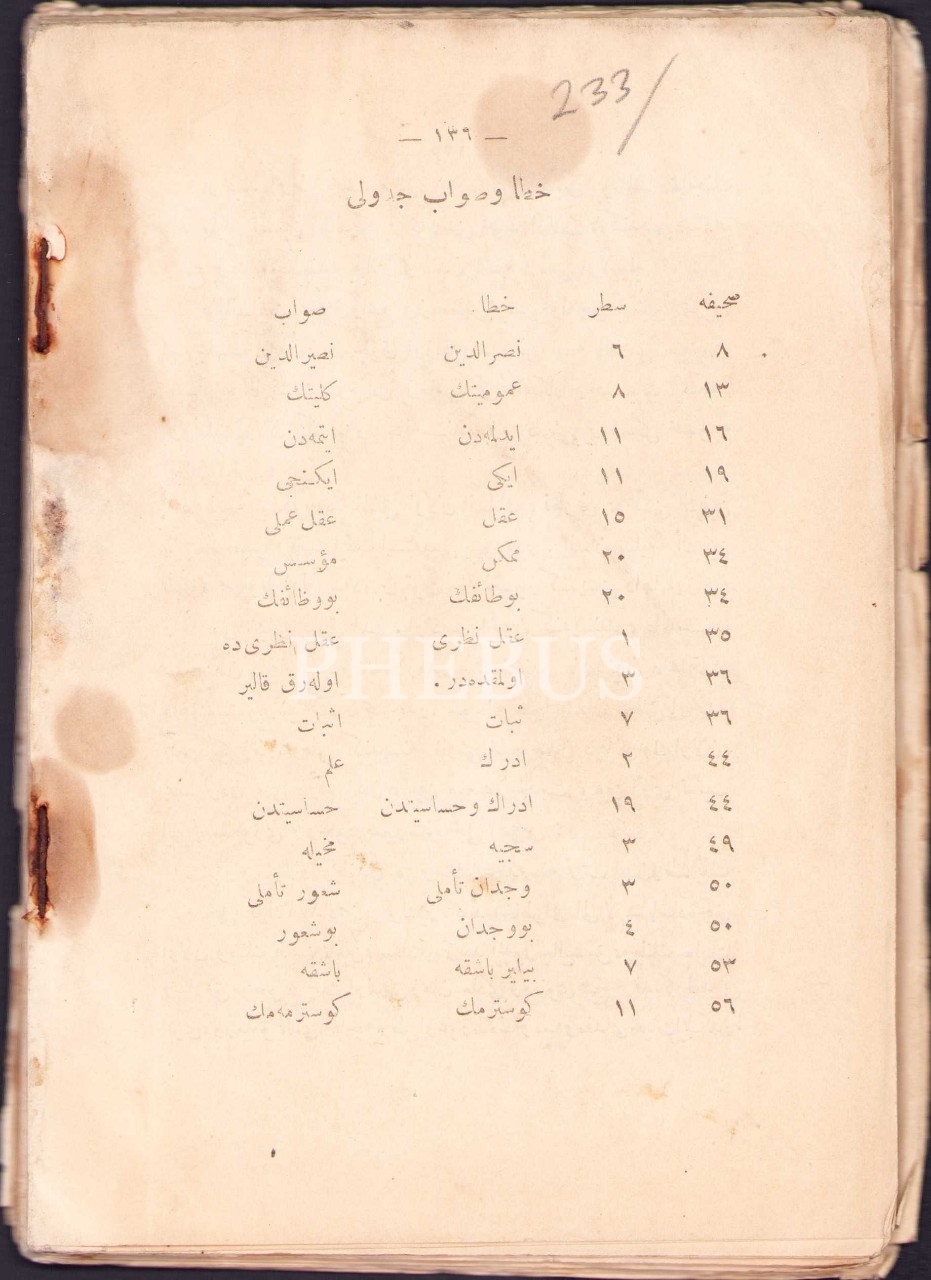 233/
— ١٣٩ —
خطا وصواب جدولی
صحیفه سطر خطا صواب
٨ ٦ نصرالدین نصیرالدین
١٣ ٨ عمومیتك کلیتك
١٦ ١١ ایدلمه‌دن ایتمه‌دن
١٩ ١١ ایکی ایکنجی
٣١ ١٥ عقل عقل عملی
٣٤ ٢٠ ممکن مؤسس
٣٤ ٢٠ بوطائفك بووظائفك
٣٥ ١ عقل نظری عقل نظری ده
٣٦ ٣ اولمقده‌در . اوله‌رق قالیر
٣٦ ٧ ثبات اثبات
٤٤ ٢ ادرك علم
٤٤ ١٩ ادراك وحساسیتدن حساسیتدن
٤٩ ٣ سجیه مخیله
٥٠ ٣ وجدان تأملی شعور تأملی
٥٠ ٤ بووجدان بوشعور
٥٣ ٧ باشقه باشقه
٥٦ ١١ کوسترمك کوسترمه‌مك
PHEBUS